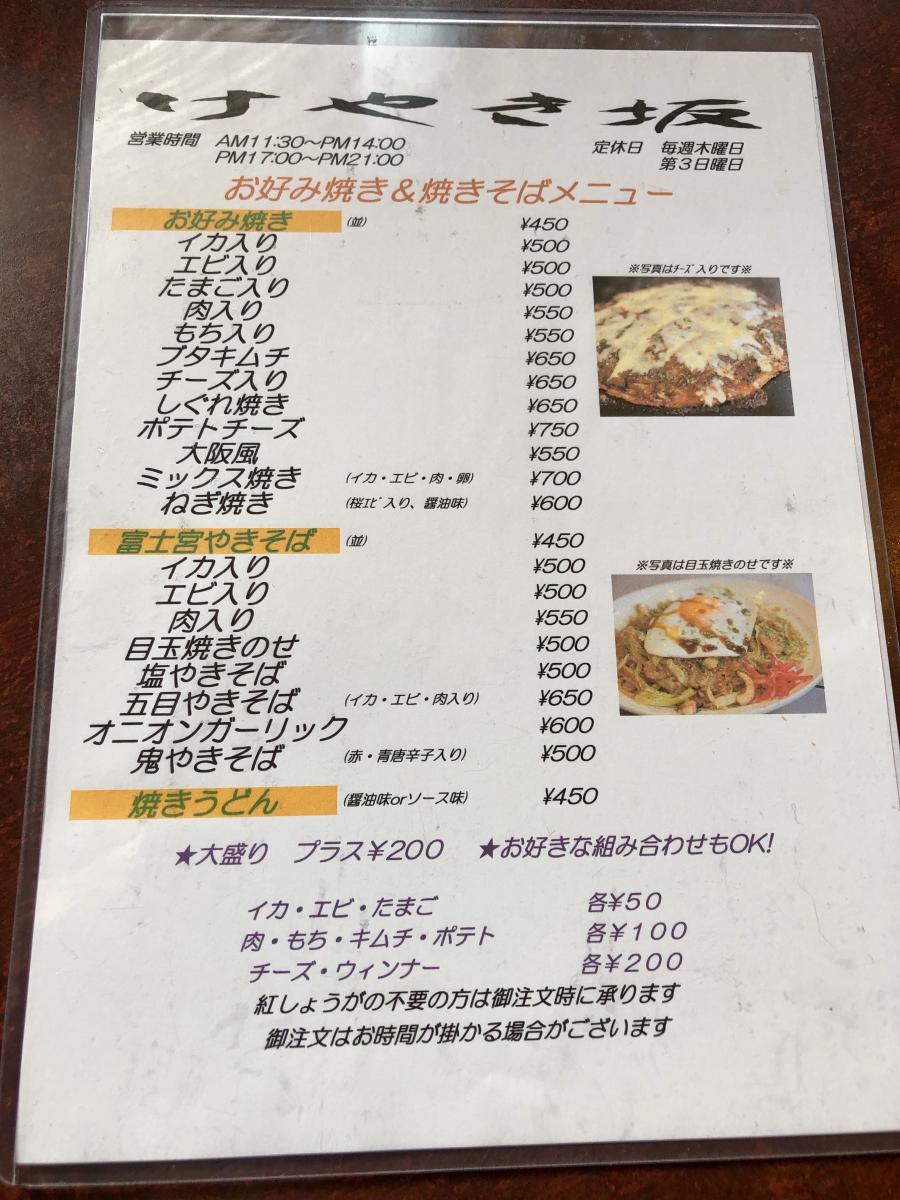 けやき坂
営業時間 AM11:30～PM14:00
PM17:00～PM21:00
定休日 毎週木曜日
第3日曜日
お好み焼き＆焼きそばメニュー
お好み焼き (並) ¥450
イカ入り ¥500
エビ入り ¥500
たまご入り ¥500
肉入り ¥550
もち入り ¥550
ブタキムチ ¥650
チーズ入り ¥650
しぐれ焼き ¥650
ポテトチーズ ¥750
大阪風 ¥550
ミックス焼き (イカ・エビ・肉・卵) ¥700
ねぎ焼き (桜ｴﾋﾞ入り、醤油味) ¥600
※写真はﾁｰｽﾞ入りです※
富士宮やきそば (並) ¥450
イカ入り ¥500
エビ入り ¥500
肉入り ¥550
目玉焼きのせ ¥500
塩やきそば ¥500
五目やきそば (イカ・エビ・肉入り) ¥650
オニオンガーリック ¥600
鬼やきそば (赤・青唐辛子入り) ¥500
※写真は目玉焼きのせです※
焼きうどん (醤油味orソース味) ¥450
★大盛り プラス¥200 ★お好きな組み合わせもOK!
イカ・エビ・たまご 各¥50
肉・もち・キムチ・ポテト 各¥100
チーズ・ウィンナー 各¥200
紅しょうがの不要の方は御注文時に承ります
御注文はお時間が掛かる場合がございます